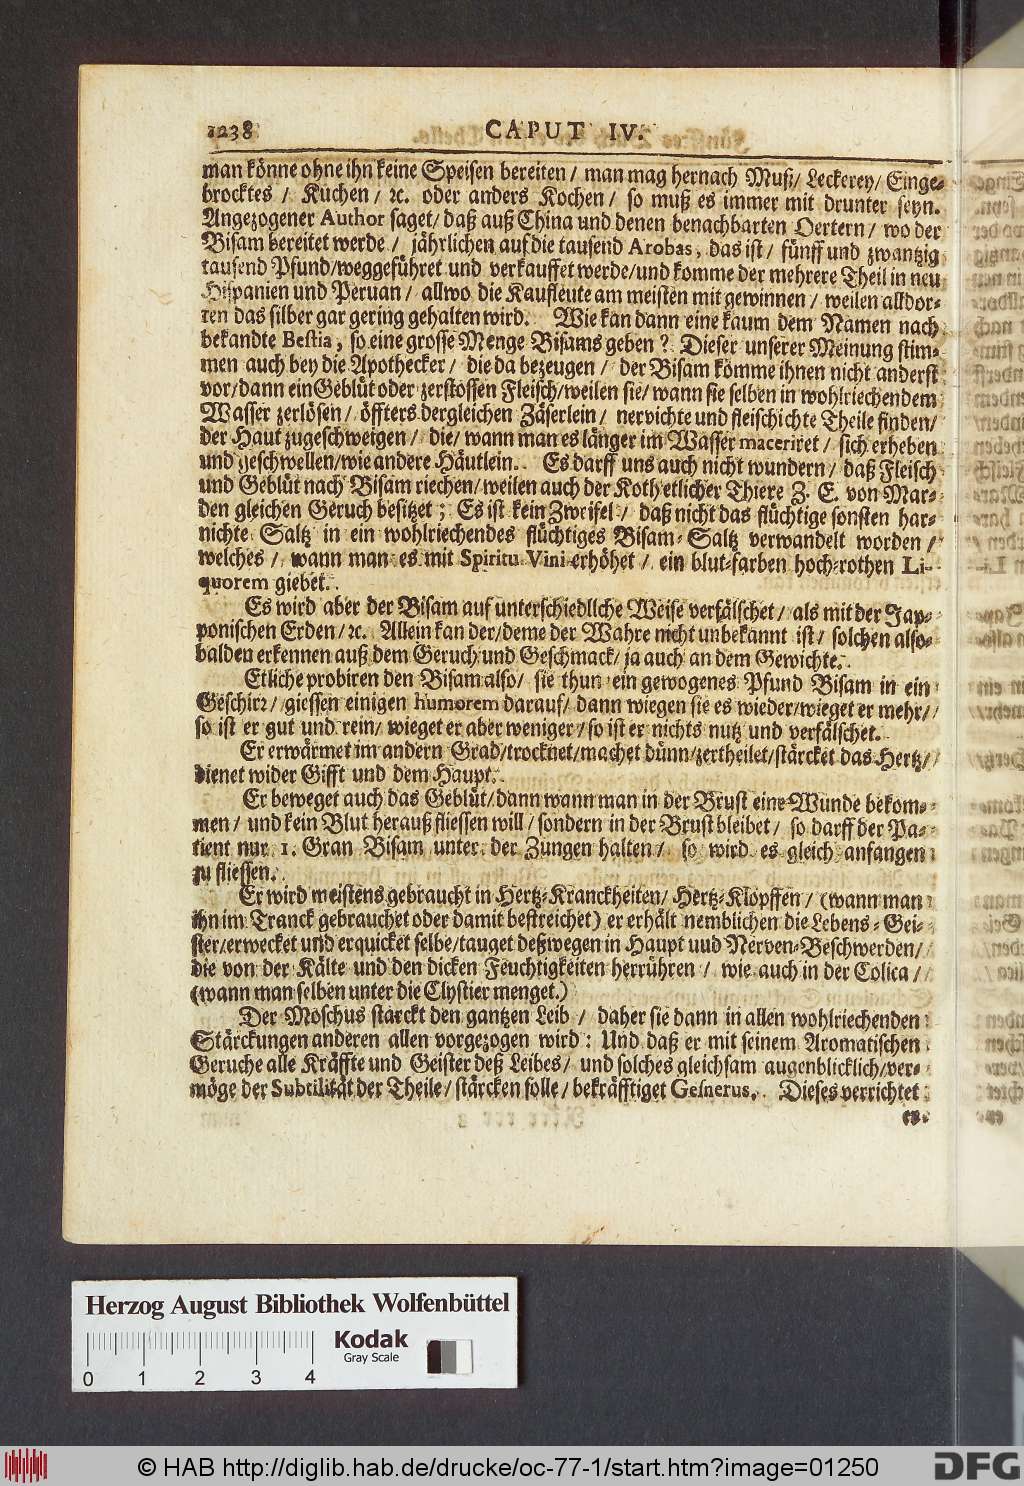 1238 CAPUT IV.
man könne ohne ihn keine Speisen bereiten / man mag hernach Muß / Leckerey / Einge-
brocktes / Kuchen / ꝛc. oder anders Kochen / so muß es immer mit drunter seyn.
Angezogener Author saget / daß auß China und denen benachbarten Oertern / wo der
Bisam bereitet werde / jährlichen auf die tausend Arobas, das ist / fünff und zwantzig
tausend Pfund / weggeführet und verkauffet werde / und komme der mehrere Theil in neu
Hispanien und Peruan / allwo die Kaufleute am meisten mit gewinnen / weilen alldor-
ten das silber gar gering gehalten wird. Wie kan dann eine kaum dem Namen nach
bekandte Bestia, so eine grosse Menge Bisams geben? Dieser unserer Meinung stim-
men auch bey die Apothecker / die da bezeugen / der Bisam kömme ihnen nicht anderst
vor / dann ein Geblüt oder zerstossen Fleisch / weilen sie / wann sie selben in wohlriechendem
Wasser zerlösen / öffters dergleichen Zäserlein / nervichte und fleischichte Theile finden /
der Haut zugeschweigen / die / wann man es länger im Wasser maceriret / sich erheben
und geschwellen / wie andere Häutlein. Es darff uns auch nicht wundern / daß Fleisch
und Geblüt nach Bisam riechen / weilen auch der Koth etlicher Thiere Z. E. von Mar-
den gleichen Geruch besitzet; Es ist kein Zweifel / daß nicht das flüchtige sonsten har-
nichte Saltz in ein wohlriechendes flüchtiges Bisam-Saltz verwandelt worden /
welches / wann man es mit Spiritu Vini erhöhet / ein blut-farben hoch-rothen Li-
quorem giebet.
Es wird aber der Bisam auf unterschiedliche Weise verfälschet / als mit der Jap-
ponischen Erden / ꝛc. Allein kan der / deme der Wahre nicht unbekannt ist / solchen also-
balden erkennen auß dem Geruch und Geschmack / ja auch an dem Gewichte.
Etliche probiren den Bisam also / sie thun ein gewogenes Pfund Bisam in ein
Geschirr / giessen einigen humorem darauf / dann wiegen sie es wieder / wieget er mehr /
so ist er gut und rein / wieget er aber weniger / so ist er nichts nutz und verfälschet.
Er erwärmet im andern Grad / trocknet / machet dünn / zertheilet / stärcket das Hertz /
dienet wider Gifft und dem Haupt.
Er beweget auch das Geblüt / dann wann man in der Brust eine Wunde bekom-
men / und kein Blut herauß fliessen will / sondern in der Brust bleibet / so darff der Pa-
tient nur 1. Gran Bisam unter der Zungen halten / so wird es gleich anfangen
zu fliessen.
Er wird meistens gebraucht in Hertz-Kranckheiten / Hertz-Klopffen / (wann man
ihn im Tranck gebrauchet oder damit bestreichet) er erhält nemblichen die Lebens-Gei-
ster / erwecket und erquicket selbe / tauget deßwegen in Haupt uud Nerven-Beschwerden /
die von der Kälte und den dicken Feuchtigkeiten herrühren / wie auch in der Colica /
(wann man selben unter die Clystier menget.)
Der Moschus stärckt den gantzen Leib / daher sie dann in allen wohlriechenden
Stärckungen anderen allen vorgezogen wird: Und daß er mit seinem Aromatischen
Geruche alle Kräffte und Geister deß Leibes / und solches gleichsam augenblicklich / ver-
möge der Subtilität der Theile / stärcken solle / bekräfftiget Gesnerus. Dieses verrichtet
er.
Herzog August Bibliothek Wolfenbüttel
Kodak
Gray Scale
0 1 2 3 4
© HAB http://diglib.hab.de/drucke/oc-77-1/start.htm?image=01250
DFG